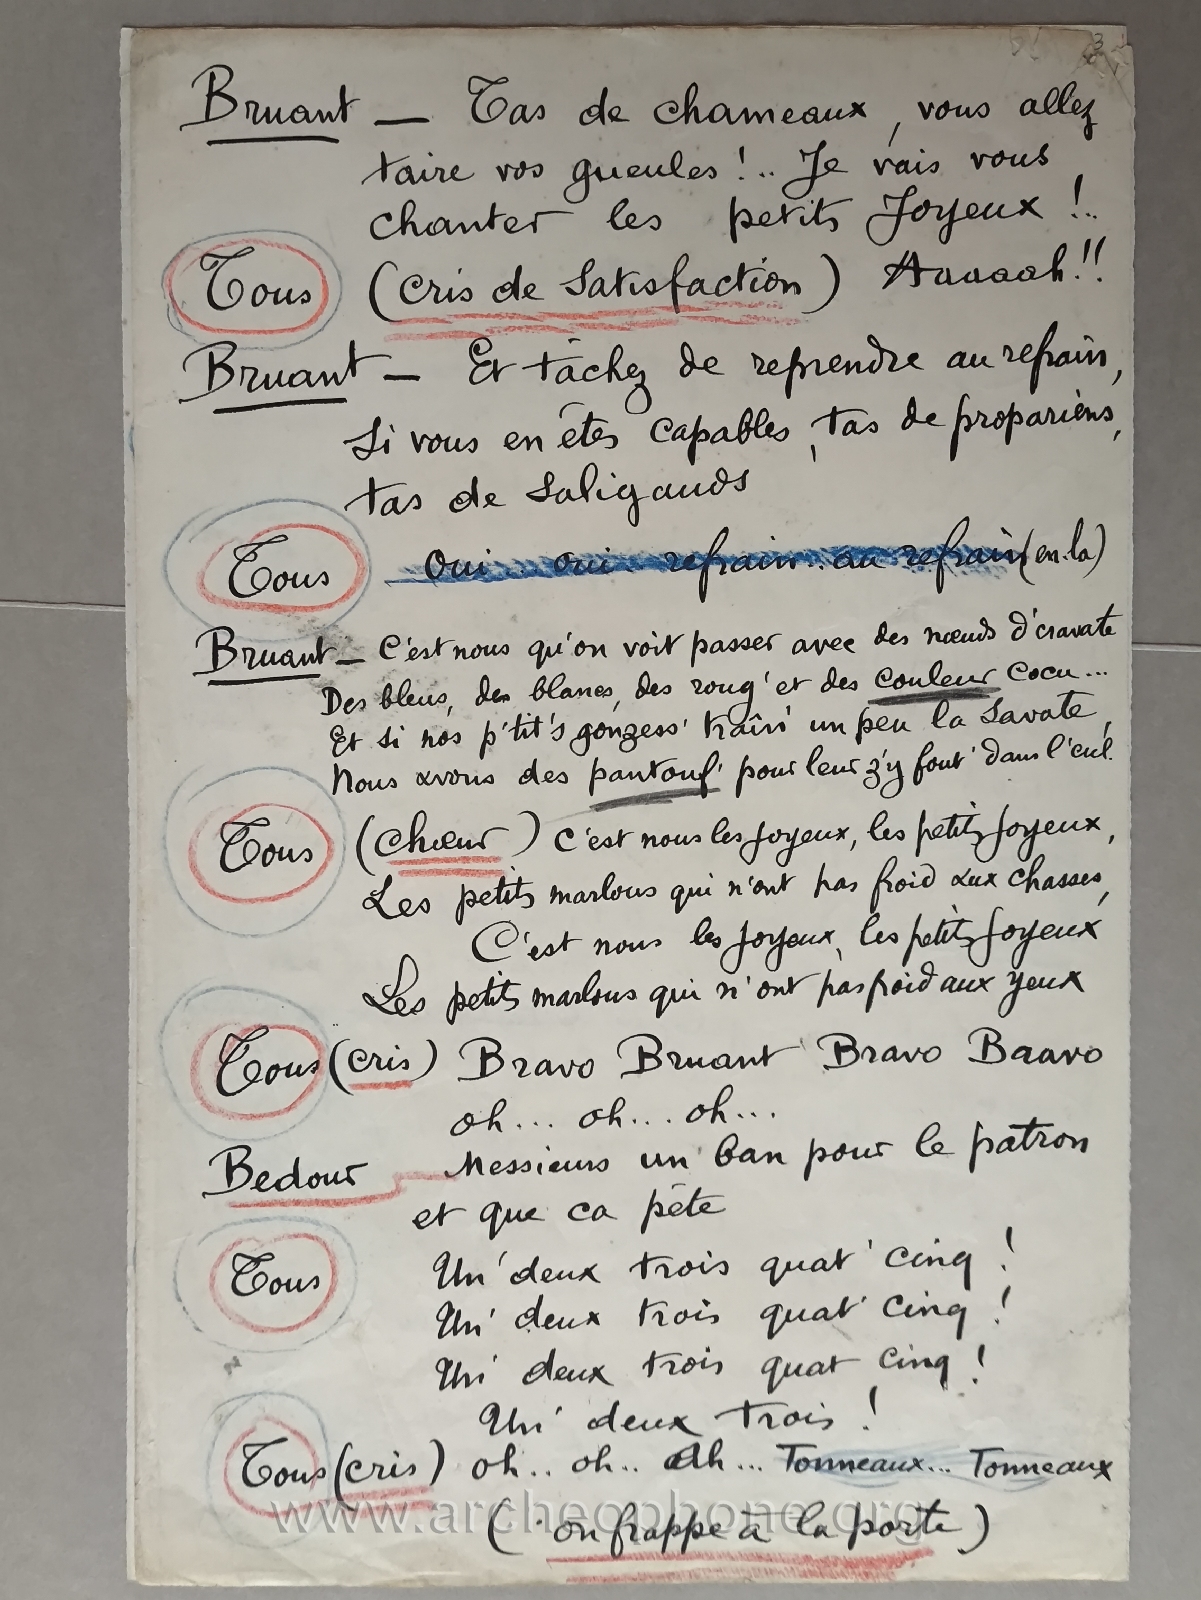 3
Bruant — Tas de chameaux, vous allez
taire vos gueules!.. Je vais vous
chanter les petits Joyeux!..
Tous (cris de satisfaction) Aaaaah!!
Bruant — Et tâchez de reprendre au refrain,
si vous en êtes capables, tas de propariens,
tas de saligauds
Tous Oui oui refrain.. au refrain (en la)
Bruant — C'est nous qu'on voit passer avec des nœuds d'cravate
Des bleus, des blancs, des roug' et des couleur cocu...
Et si nos p'tit's gonzess' traîn' un peu la savate,
Nous avons des pantouf' pour leur z'y fout' dans l'cul.
Tous (chœur) C'est nous les Joyeux, les petits Joyeux,
Les petits marlous qui n'ont pas froid aux chasses,
C'est nous les Joyeux, les petits Joyeux
Les petits marlous qui n'ont pas froid aux yeux
Tous (cris) Bravo Bruant Bravo Baavo
oh... oh... oh...
Bedour Messieurs un ban pour le patron
et que ca pète
Tous Un' deux trois quat' cinq!
Un' deux trois quat' cinq!
Un' deux trois quat cinq!
Un' deux trois!
Tous (cris) oh.. oh.. Ah... Tonneaux... Tonneaux
(on frappe à la porte)
www.archeophone.org